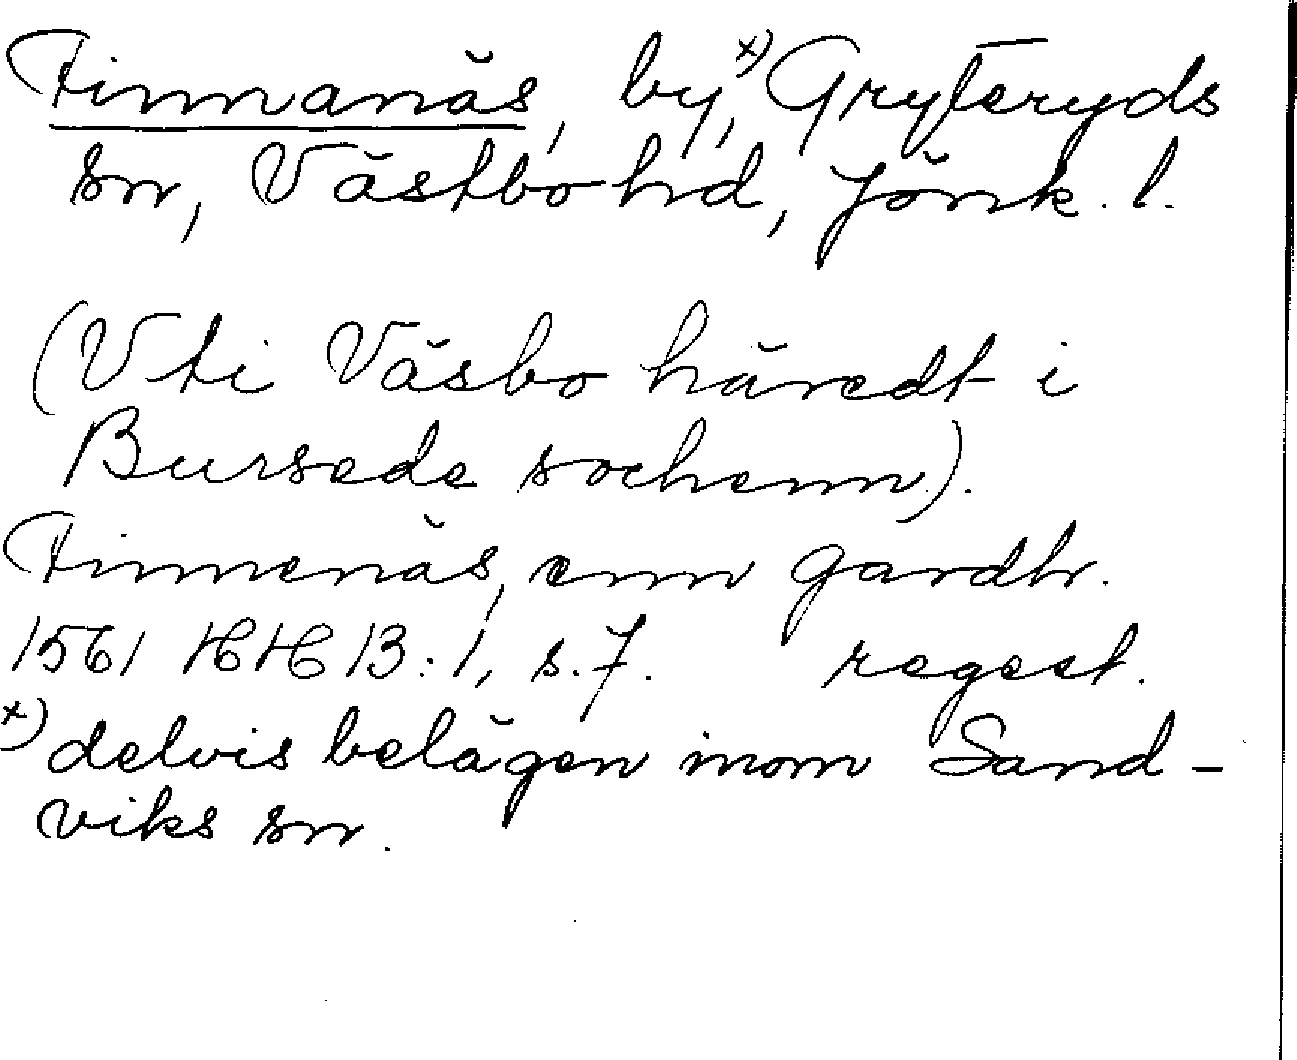 Finnanäs, by,x) Gryteryds
sn, Västbo hd, Jönk. l.
(Vti Väsbo häredt i
Bursede sochenn).
Finnenäs, enn gardtr.
1561 HH B:1, s. 7. regest.
x) delvis belägen inom Sand-
viks sn.